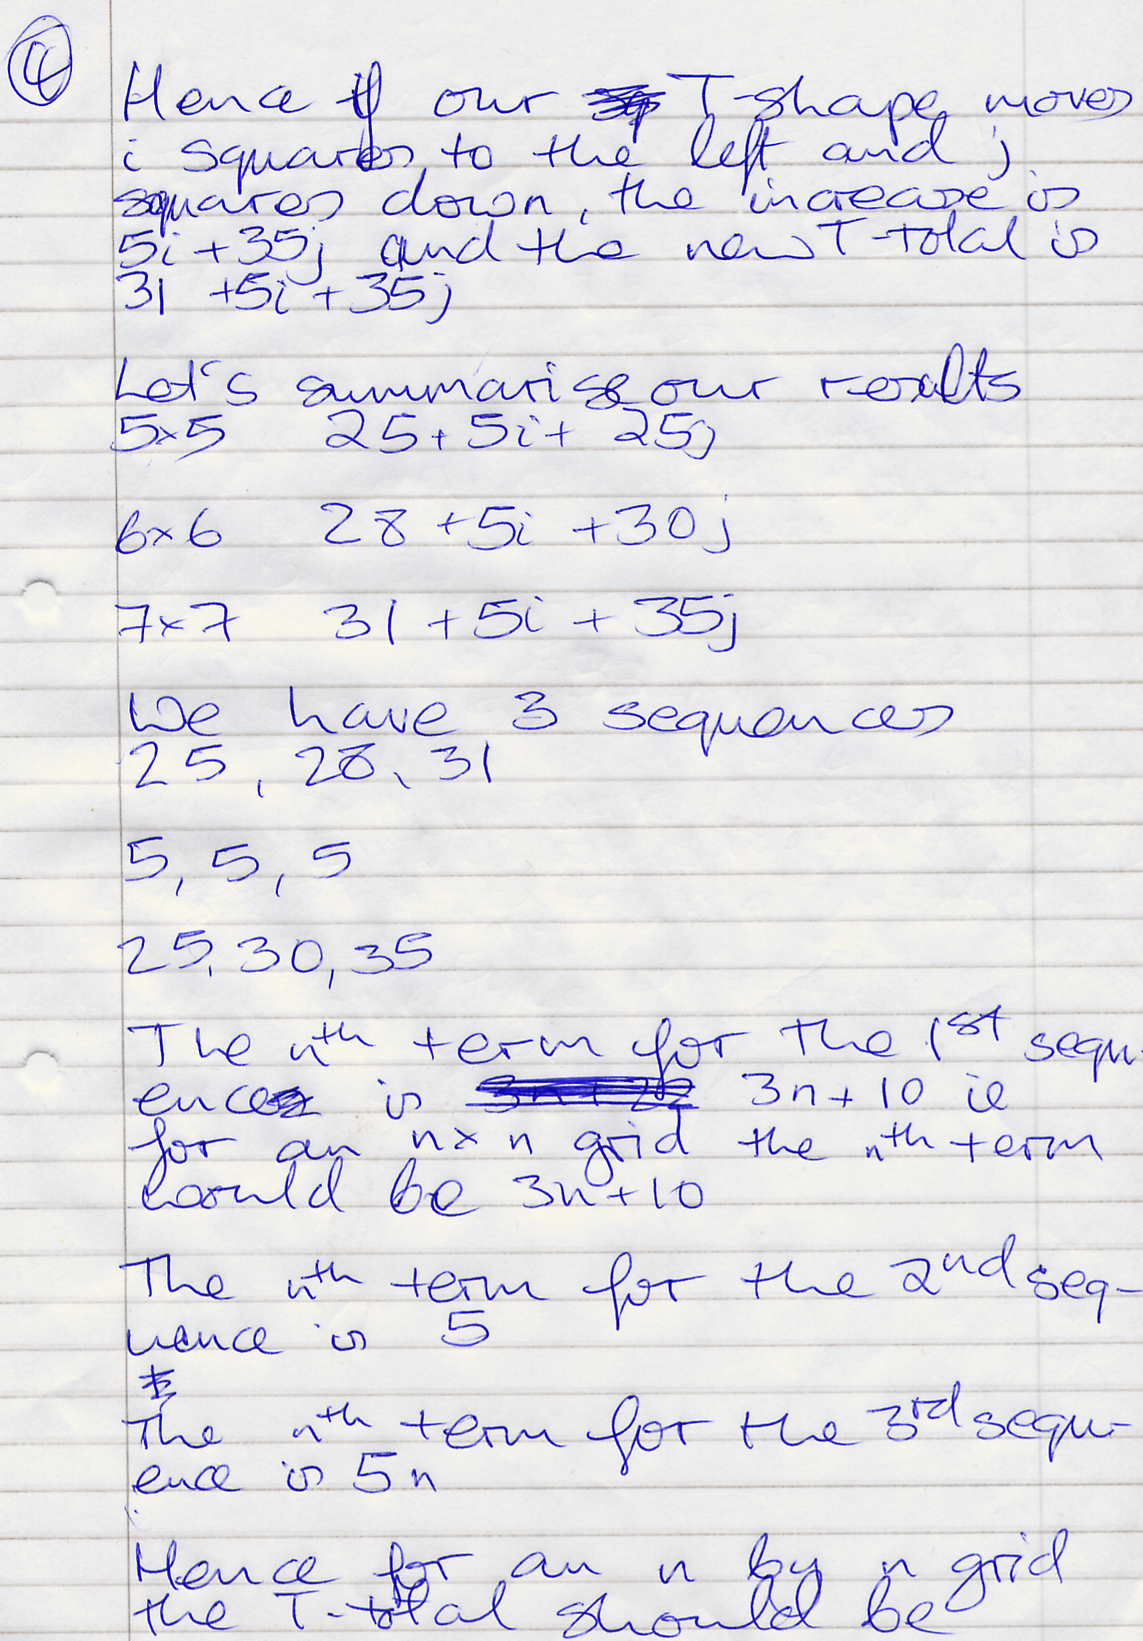 4
Hence if our T-shape moves
i squares to the left and j
squares down, the increase is
5i + 35j and the new T-total is
31 + 5i + 35j
Let's summarise our results
5×5 25 + 5i + 25j
6×6 28 + 5i + 30j
7×7 31 + 5i + 35j
We have 3 sequences
25, 28, 31
5, 5, 5
25, 30, 35
The nth term for the 1st sequ-
ence is 3n+22 3n + 10 ie
for an n × n grid the nth term
would be 3n+10
The nth term for the 2nd seq-
uence is 5
The nth term for the 3rd sequ-
ence is 5n
Hence for an n by n grid
the T-total should be